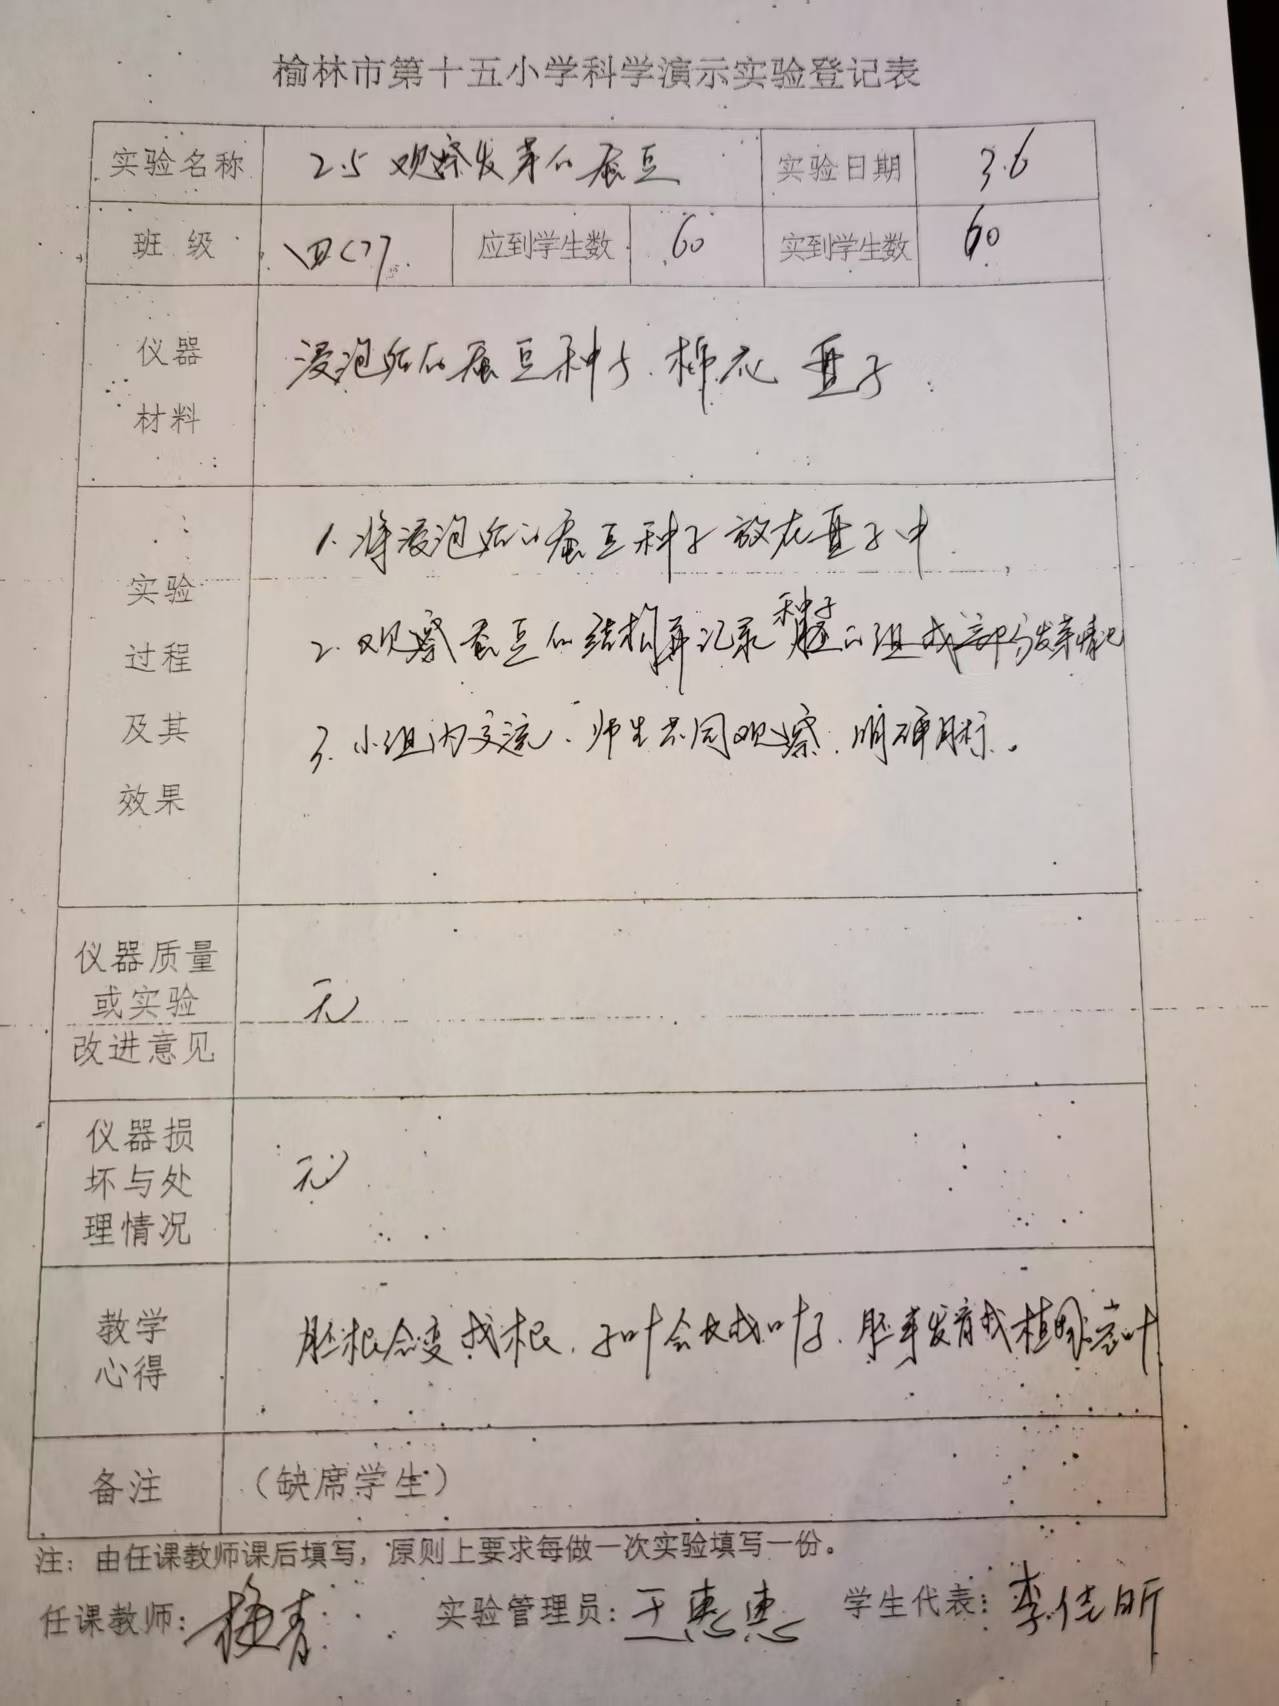 榆林市第十五小学科学演示实验登记表
实验名称 2.5 观察发芽的蚕豆 实验日期 3.6
班级 四(7) 应到学生数 60 实到学生数 60
仪器
材料
浸泡后的蚕豆种子、棉花 盘子
实验
过程
及其
效果
1. 将浸泡后的蚕豆种子放在盘子中
2. 观察蚕豆的结构并记录种子胚的组成部分发芽情况
3. 小组内交流、师生共同观察、明确目标。
仪器质量
或实验
改进意见
无
仪器损
坏与处
理情况
无
教学
心得
胚根会变成根、子叶会长成叶子、胚芽发育成植物茎叶
备注 (缺席学生)
注：由任课教师课后填写，原则上要求每做一次实验填写一份。
任课教师: 实验管理员: 王惠惠 学生代表: 李佳昕